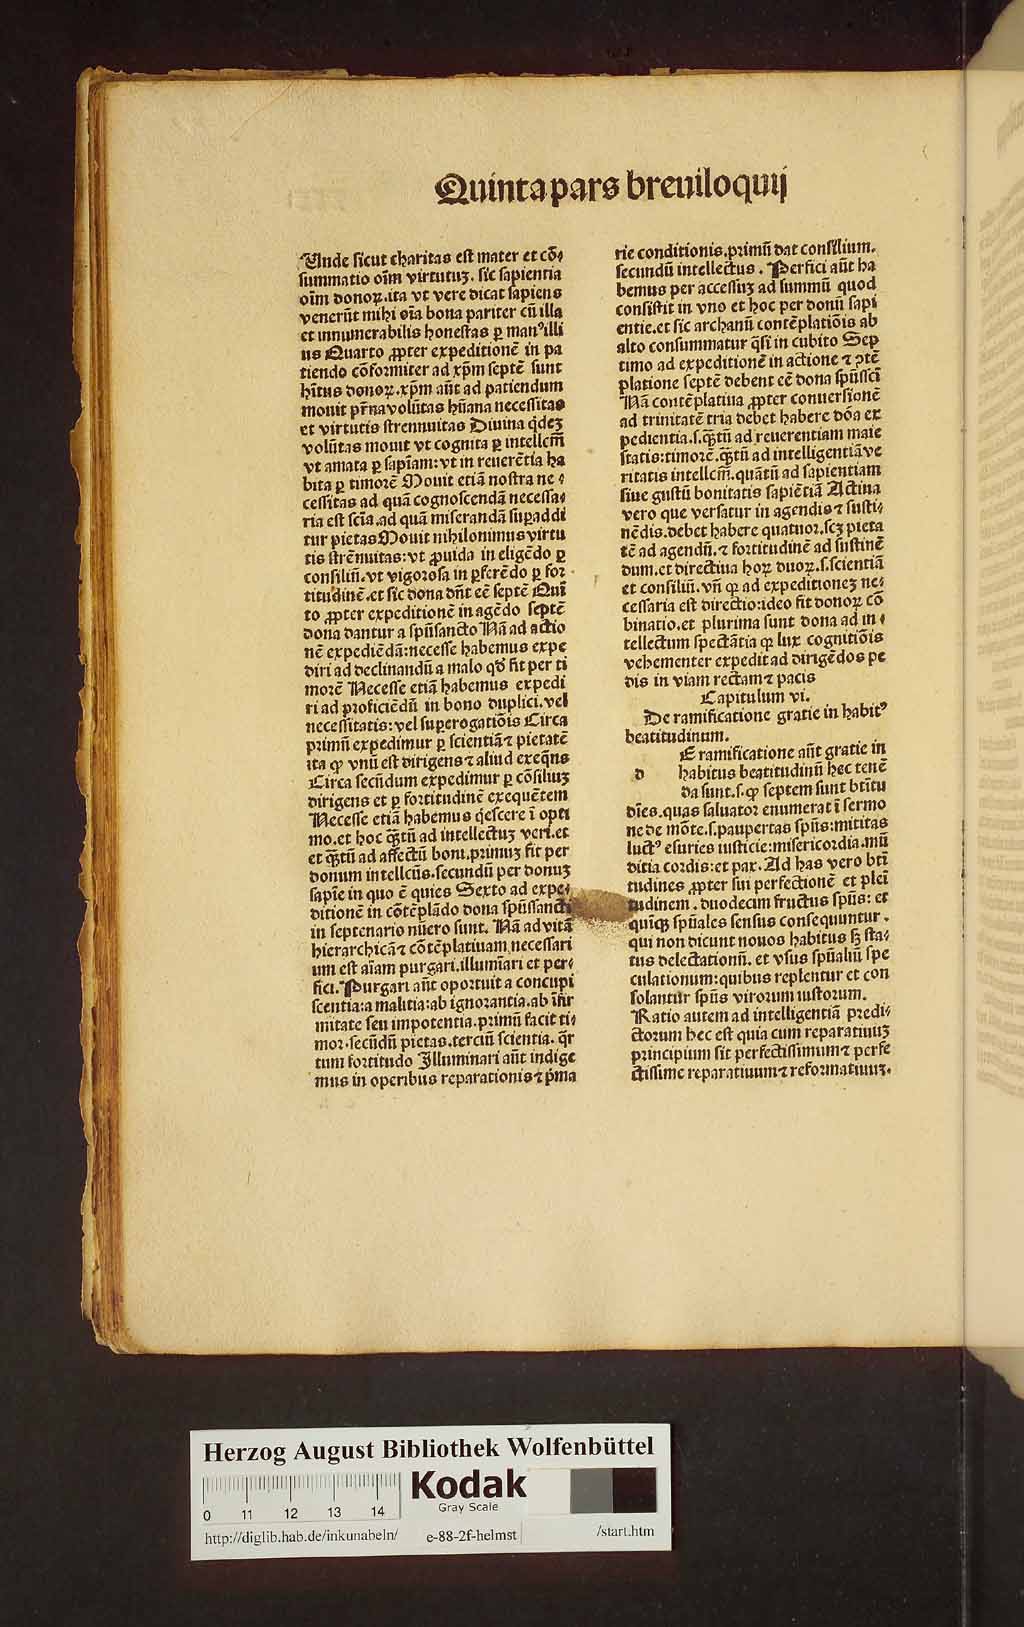 Quinta pars breuiloquij
Unde sicut charitas est mater et cō-
summatio oīm virtutuꝫ. sic sapientia
oīm donoꝝ. ita vt vere dicat sapiens
venerūt mihi oīa bona pariter cū illa
et innumerabilis honestas ꝑ manꝰ illi
us Quarto ꝓpter expeditionē in pa
tiendo cōformiter ad xp̄m septē sunt
hītus donoꝝ. xp̄m aūt ad patiendum
mouit pr̄na volūtas hūana necessitas
et virtutis strennuitas Diuina q̇deꝫ
volūtas mouit vt cognita ꝑ intellcm̄
vt amata ꝑ sapīam: vt in reuerētia ha
bita ꝑ timorē Mouit etiā nostra ne-
cessitas ad quā cognoscendā necessa-
ria est scīa. ad quā miserandā suꝑaddi
tur pietas Mouit nihilominus virtu
tis strēnuitas: vt ꝓuida in eligēdo ꝑ
consiliū. vt vigorosa in ꝑferēdo ꝑ for
titudinē. et sic dona dn̄t eē septē Quī
to ꝓpter expeditionē in agēdo septē
dona dantur a spūsancto Nā ad actio
nē expediēdā: necesse habemus expe
diri ad declinandū a malo qḋ fit per ti
morē Necesse etiā habemus expedi
ri ad proficiēdū in bono duplici. vel
necessitatis: vel supererogatiōis Circa
primū expedimur ꝑ scientiā ⁊ pietatē
ita ꝙ vnū est dirigens ⁊ aliud exeq̄ns
Circa secūdum expedimur ꝑ cōsiliuꝫ
dirigens et ꝑ fortitudinē exequētem
Necesse etiā habemus q̇escere ī opti
mo. et hoc q̄ꝫtū ad intellectuꝫ veri. et
et q̄ꝫtū ad affectū boni. primuꝫ fit per
donum intellcūs. secundū per donuꝫ
sapīe in quo ē quies Sexto ad expe-
ditionē in cōtēplādo dona spūssancti
in septenario nūero sunt. Nā ad vitā
hierarchicā ⁊ cōtēplatiuam necessari
um est aīam purgari. illumīari et per-
fici. Purgari aūt oportuit a concupi
scentia: a malitia: ab ignorantia. ab īfir
mitate seu impotentia. primū facit ti-
mor. secūdū pietas. terciū scientia. q̄r
tum fortitudo Illuminari aūt indige
mus in operibus reparationis ⁊ p̄ma
rie conditionis. primū dat consilium.
secundū intellectus. Perfici aūt ha
bemus per accessuꝫ ad summū quod
consistit in vno et hoc per donū sapi
entie. et sic archanū contēplatiōis ab
alto consummatur q̄si in cubito Sep
timo ad expeditionē in actione ⁊ ꝯtē
platione septē debent eē dona spūssci
Nā contēplatiua ꝓpter conuersionē
ad trinitatē tria debet habere dōa ex
pedientia. s. q̄ꝫtū ad reuerentiam maie
statis: timorē. q̄ꝫtū ad intelligentiā ve
ritatis intellcm̄. quātū ad sapientiam
siue gustū bonitatis sapiētiā Actiua
vero que versatur in agendis ⁊ susti-
nēdis. debet habere quatuor. scꝫ pieta
tē ad agendū. ⁊ fortitudinē ad sustinē
dum. et directiua hoꝝ duoꝝ. s. scientiā
et consiliū. vn̄ ꝙ ad expeditioneꝫ ne-
cessaria est directio: ideo fit donoꝝ cō
binatio. et plurima sunt dona ad in-
tellectum spectātia ꝙ lux cognitiōis
vehementer expedit ad dirigēdos pe
dis in viam rectam ⁊ pacis
Capitulum vi.
De ramificatione gratie in habitꝰ
beatitudinum.
d E ramificatione aūt gratie in
habitus beatitudinū hec tenē
da sunt. s. ꝙ septem sunt btītu
dīes. quas saluator enumerat ī sermo
ne de mōte. s. paupertas spūs: mititas
luctꝰ esuries iusticie: misericordia. mū
ditia cordis: et pax. Ad has vero btī
tudines ꝓpter sui perfectionē et pleī
tudinem. duodecim fructus spūs: et
quīqꝫ spūales sensus consequuntur.
qui non dicunt nouos habitus sꝫ sta-
tus delectationū. et vsus spūaliū spe
culationum: quibus replentur et con
solantur spūs virorum iustorum.
Ratio autem ad intelligentiā predi-
ctorum hec est quia cum reparatiuuꝫ
principium sit perfectissimum ⁊ perfe
ctissime reparatiuum ⁊ reformatiuuꝫ.
Herzog August Bibliothek Wolfenbüttel
Kodak
Gray Scale
0 11 12 13 14
http://diglib.hab.de/inkunabeln/ e-88-2f-helmst /start.htm